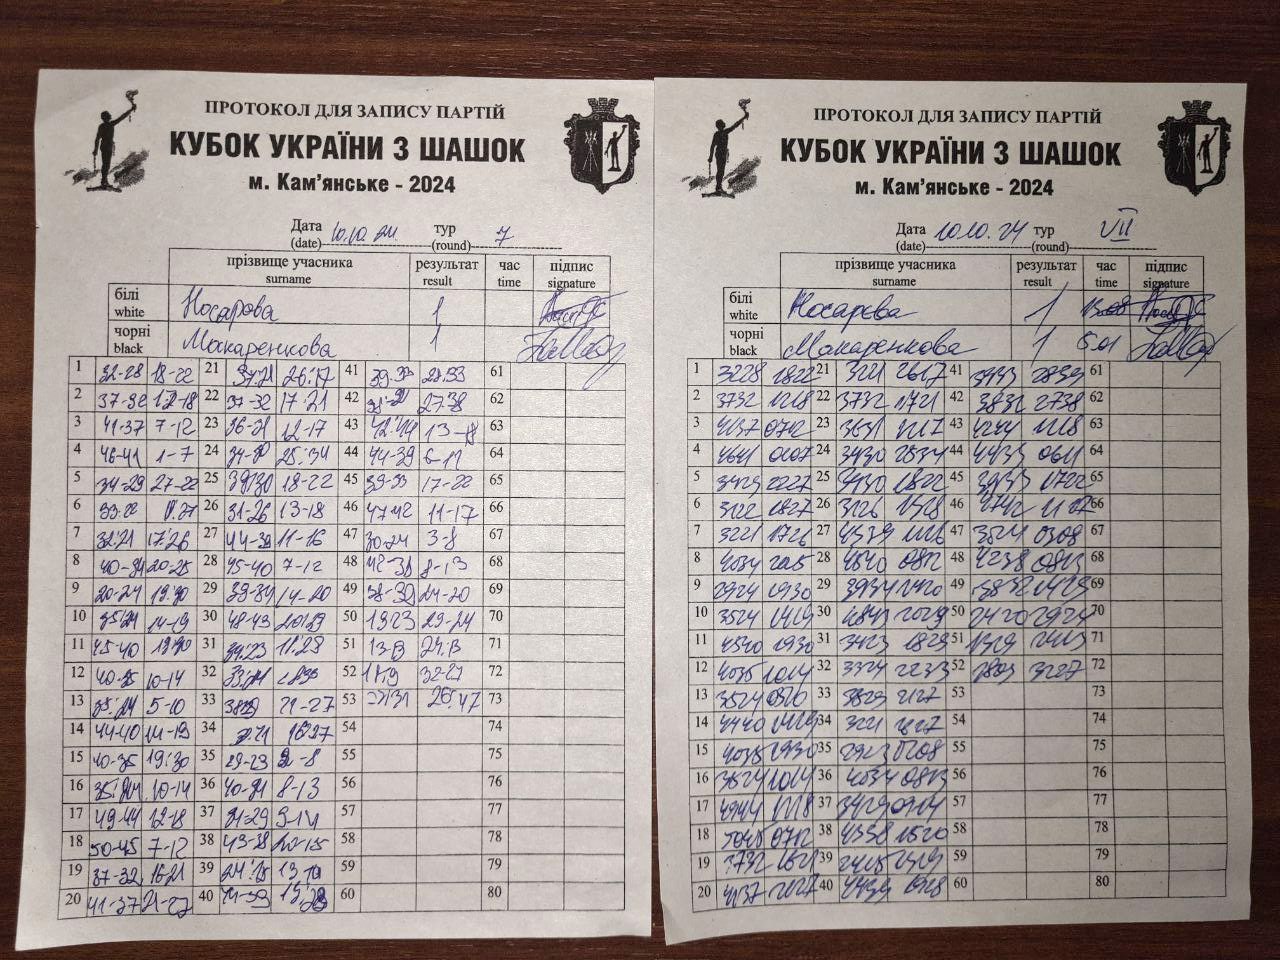 ПРОТОКОЛ ДЛЯ ЗАПИСУ ПАРТІЙ
КУБОК УКРАЇНИ З ШАШОК
м. Кам'янське - 2024
Дата 10.10.24 тур 7
(date) (round)
прізвище учасника результат час підпис
surname result time signature
білі Носарєва 1
white
чорні Макаренкова 1
black
1 32-28 18-22 21 26:17 41 39-33 28:39 61
2 37-32 12-18 22 37-32 17:21 42 27:38 62
3 41-37 7-12 23 36-31 12-17 43 13-18 63
4 46-41 1-7 24 34-30 25:34 44 44-39 6-11 64
5 34-29 27-22 25 39:30 18-22 45 39-33 17-22 65
6 26 31-26 13-18 46 47-42 11-17 66
7 32:21 17:26 27 44-39 11-16 47 30-24 3-8 67
8 40-34 20-25 28 45-40 7-12 48 42-38 8-13 68
9 29-24 19:30 29 39-34 14-20 49 24-20 69
10 35:24 14-19 30 48-43 20:29 50 29-24 70
11 45-40 19:30 31 34:23 51 72
12 40-35 10-14 32 52 32-27 72
13 35:24 5-10 33 38:29 21-27 53 26:47 73
14 44-40 14-19 34 16:27 54 74
15 40-35 19:30 35 29-23 55 75
16 35:24 10-14 36 40-34 8-13 56 76
17 49-44 12-18 37 34-29 9-14 57 77
18 50-45 7-12 38 43-38 20-15 58 78
19 37-32 16-21 39 24:15 59 79
20 41-37 21-27 40 44-39 60 80
ПРОТОКОЛ ДЛЯ ЗАПИСУ ПАРТІЙ
КУБОК УКРАЇНИ З ШАШОК
м. Кам'янське - 2024
Дата 10.10.24 тур VII
(date) (round)
прізвище учасника результат час підпис
surname result time signature
білі Носарєва 1
white
чорні Макаренкова 1 5.01
black
1 3228 1822 21 3221 2617 41 3933 2839 61
2 3732 1218 22 3732 1721 42 3832 2738 62
3 4137 0712 23 3631 1217 43 4244 1218 63
4 4641 0107 24 3430 2534 44 4439 0611 64
5 3429 25 1822 45 3933 1722 65
6 3122 1827 26 3126 1318 46 4742 66
7 3221 1726 27 4439 1116 47 3024 0308 67
8 4034 2025 28 4540 0812 48 4238 0813 68
9 2924 1930 29 3934 1420 49 3832 69
10 3524 1419 30 4843 2029 50 2420 2924 70
11 4540 1930 31 3423 1829 51 71
12 4035 1014 32 3324 2233 52 3227 72
13 3524 0510 33 3829 2127 53 73
14 4440 1419 34 3221 1627 54 74
15 4035 1930 35 2923 0208 55 75
16 3524 1014 36 4034 0813 56 76
17 4944 1218 37 3429 0914 57 77
18 5045 0712 38 4338 1520 58 78
19 3732 1621 39 2415 1319 59 79
20 4137 2127 40 4439 1928 60 80